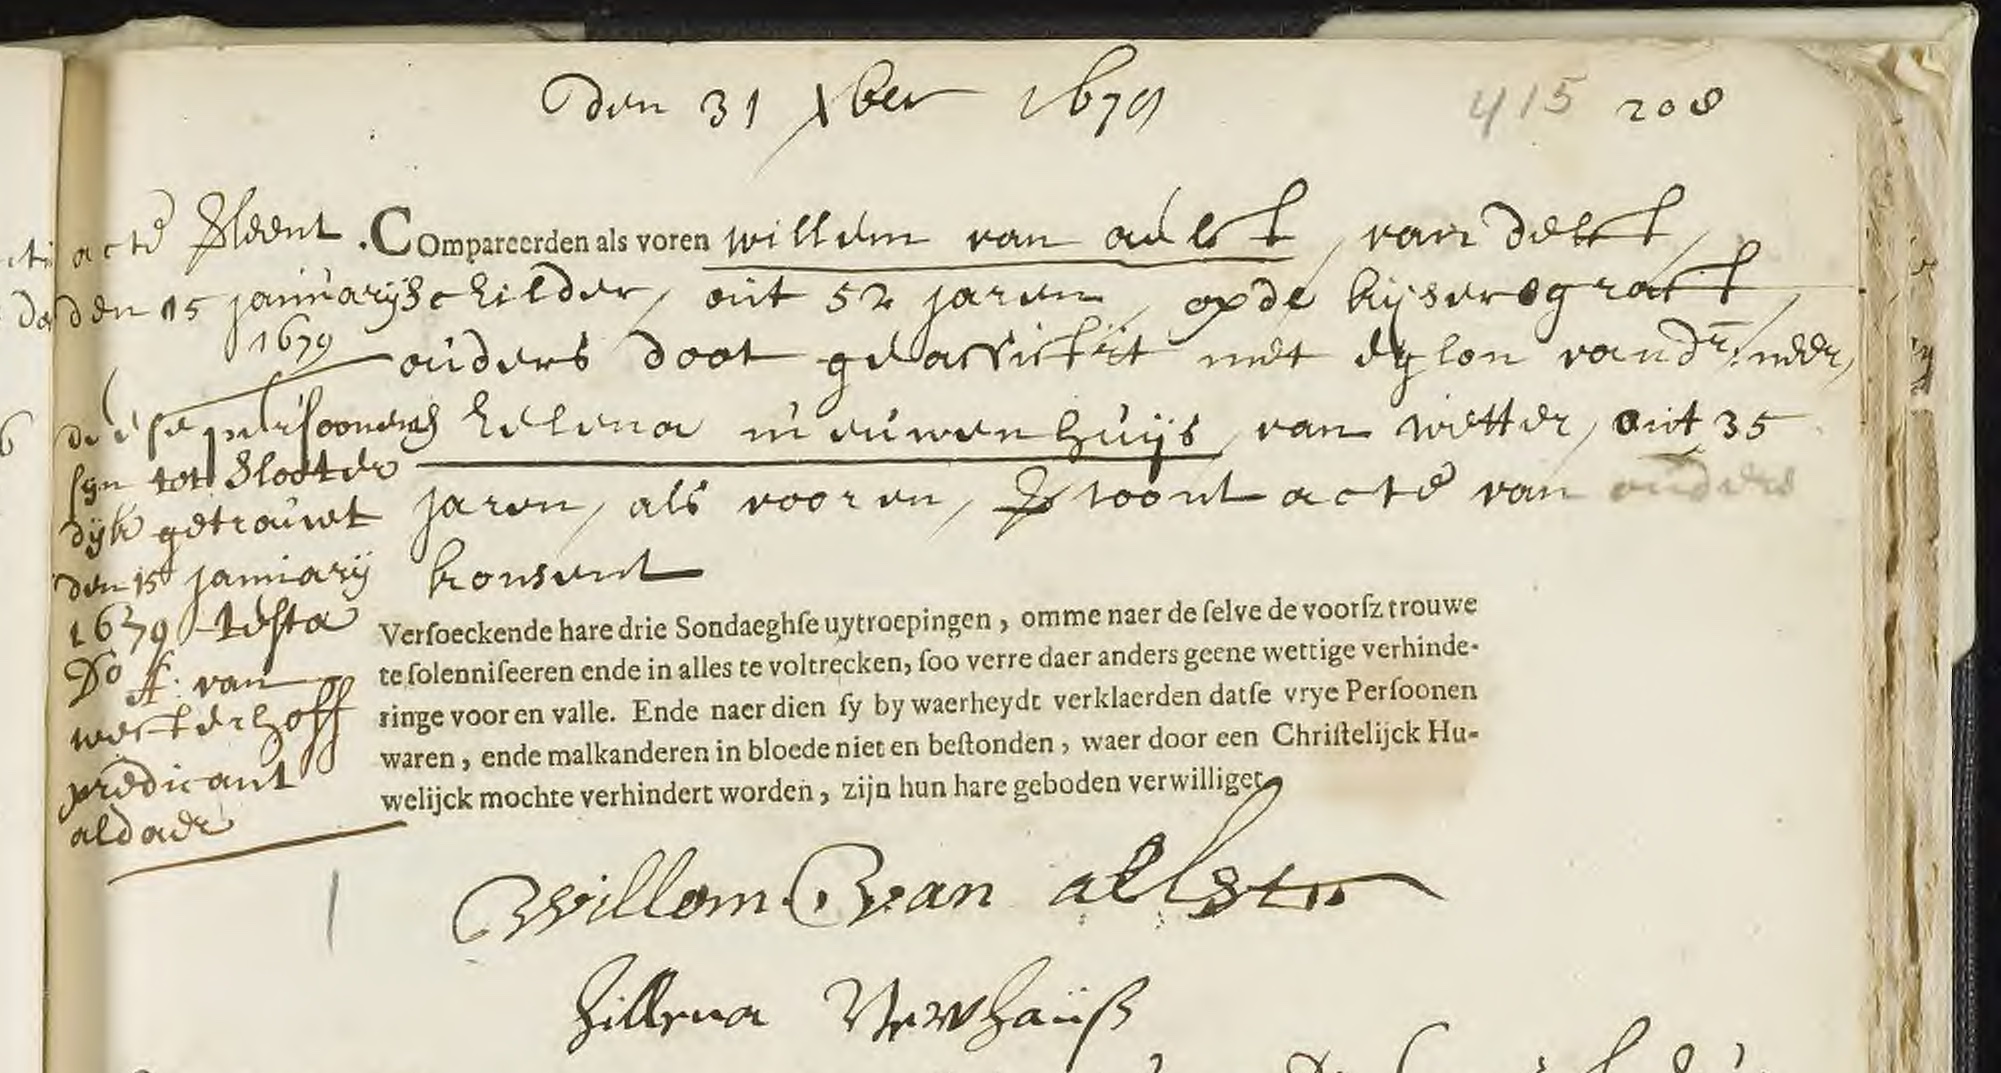 den 31 Xber 1679
415 208
acte verleent . Compareerden als voren willem van aelst, van delft,
den 15 januarij schilder, out 52 jaren, op de kijsersgraft,
1679 ouders doot geassisteert met eylon vand.r meer,
dese persoonen & helena nieuwenhuijs, van wetter, out 35
sijn tot slooter jaren, als vooren, & toont acte van ouders
dijk getrouwt konsent
den 15 januarij
1679 testa
Do ff: van
westerhoff
predicant
aldaer
Versoeckende hare drie Sondaeghse uytroepingen, omme naer de selve de voorsz trouwe
te solenniseeren ende in alles te voltrecken, soo verre daer anders geene wettige verhinde-
ringe voor en valle. Ende naer dien sy by waerheydt verklaerden datse vrye Persoonen
waren, ende malkanderen in bloede niet en bestonden, waer door een Christelijck Hu-
welijck mochte verhindert worden, zijn hun hare geboden verwilliget
Willem van aelst
Hillena Newhauß